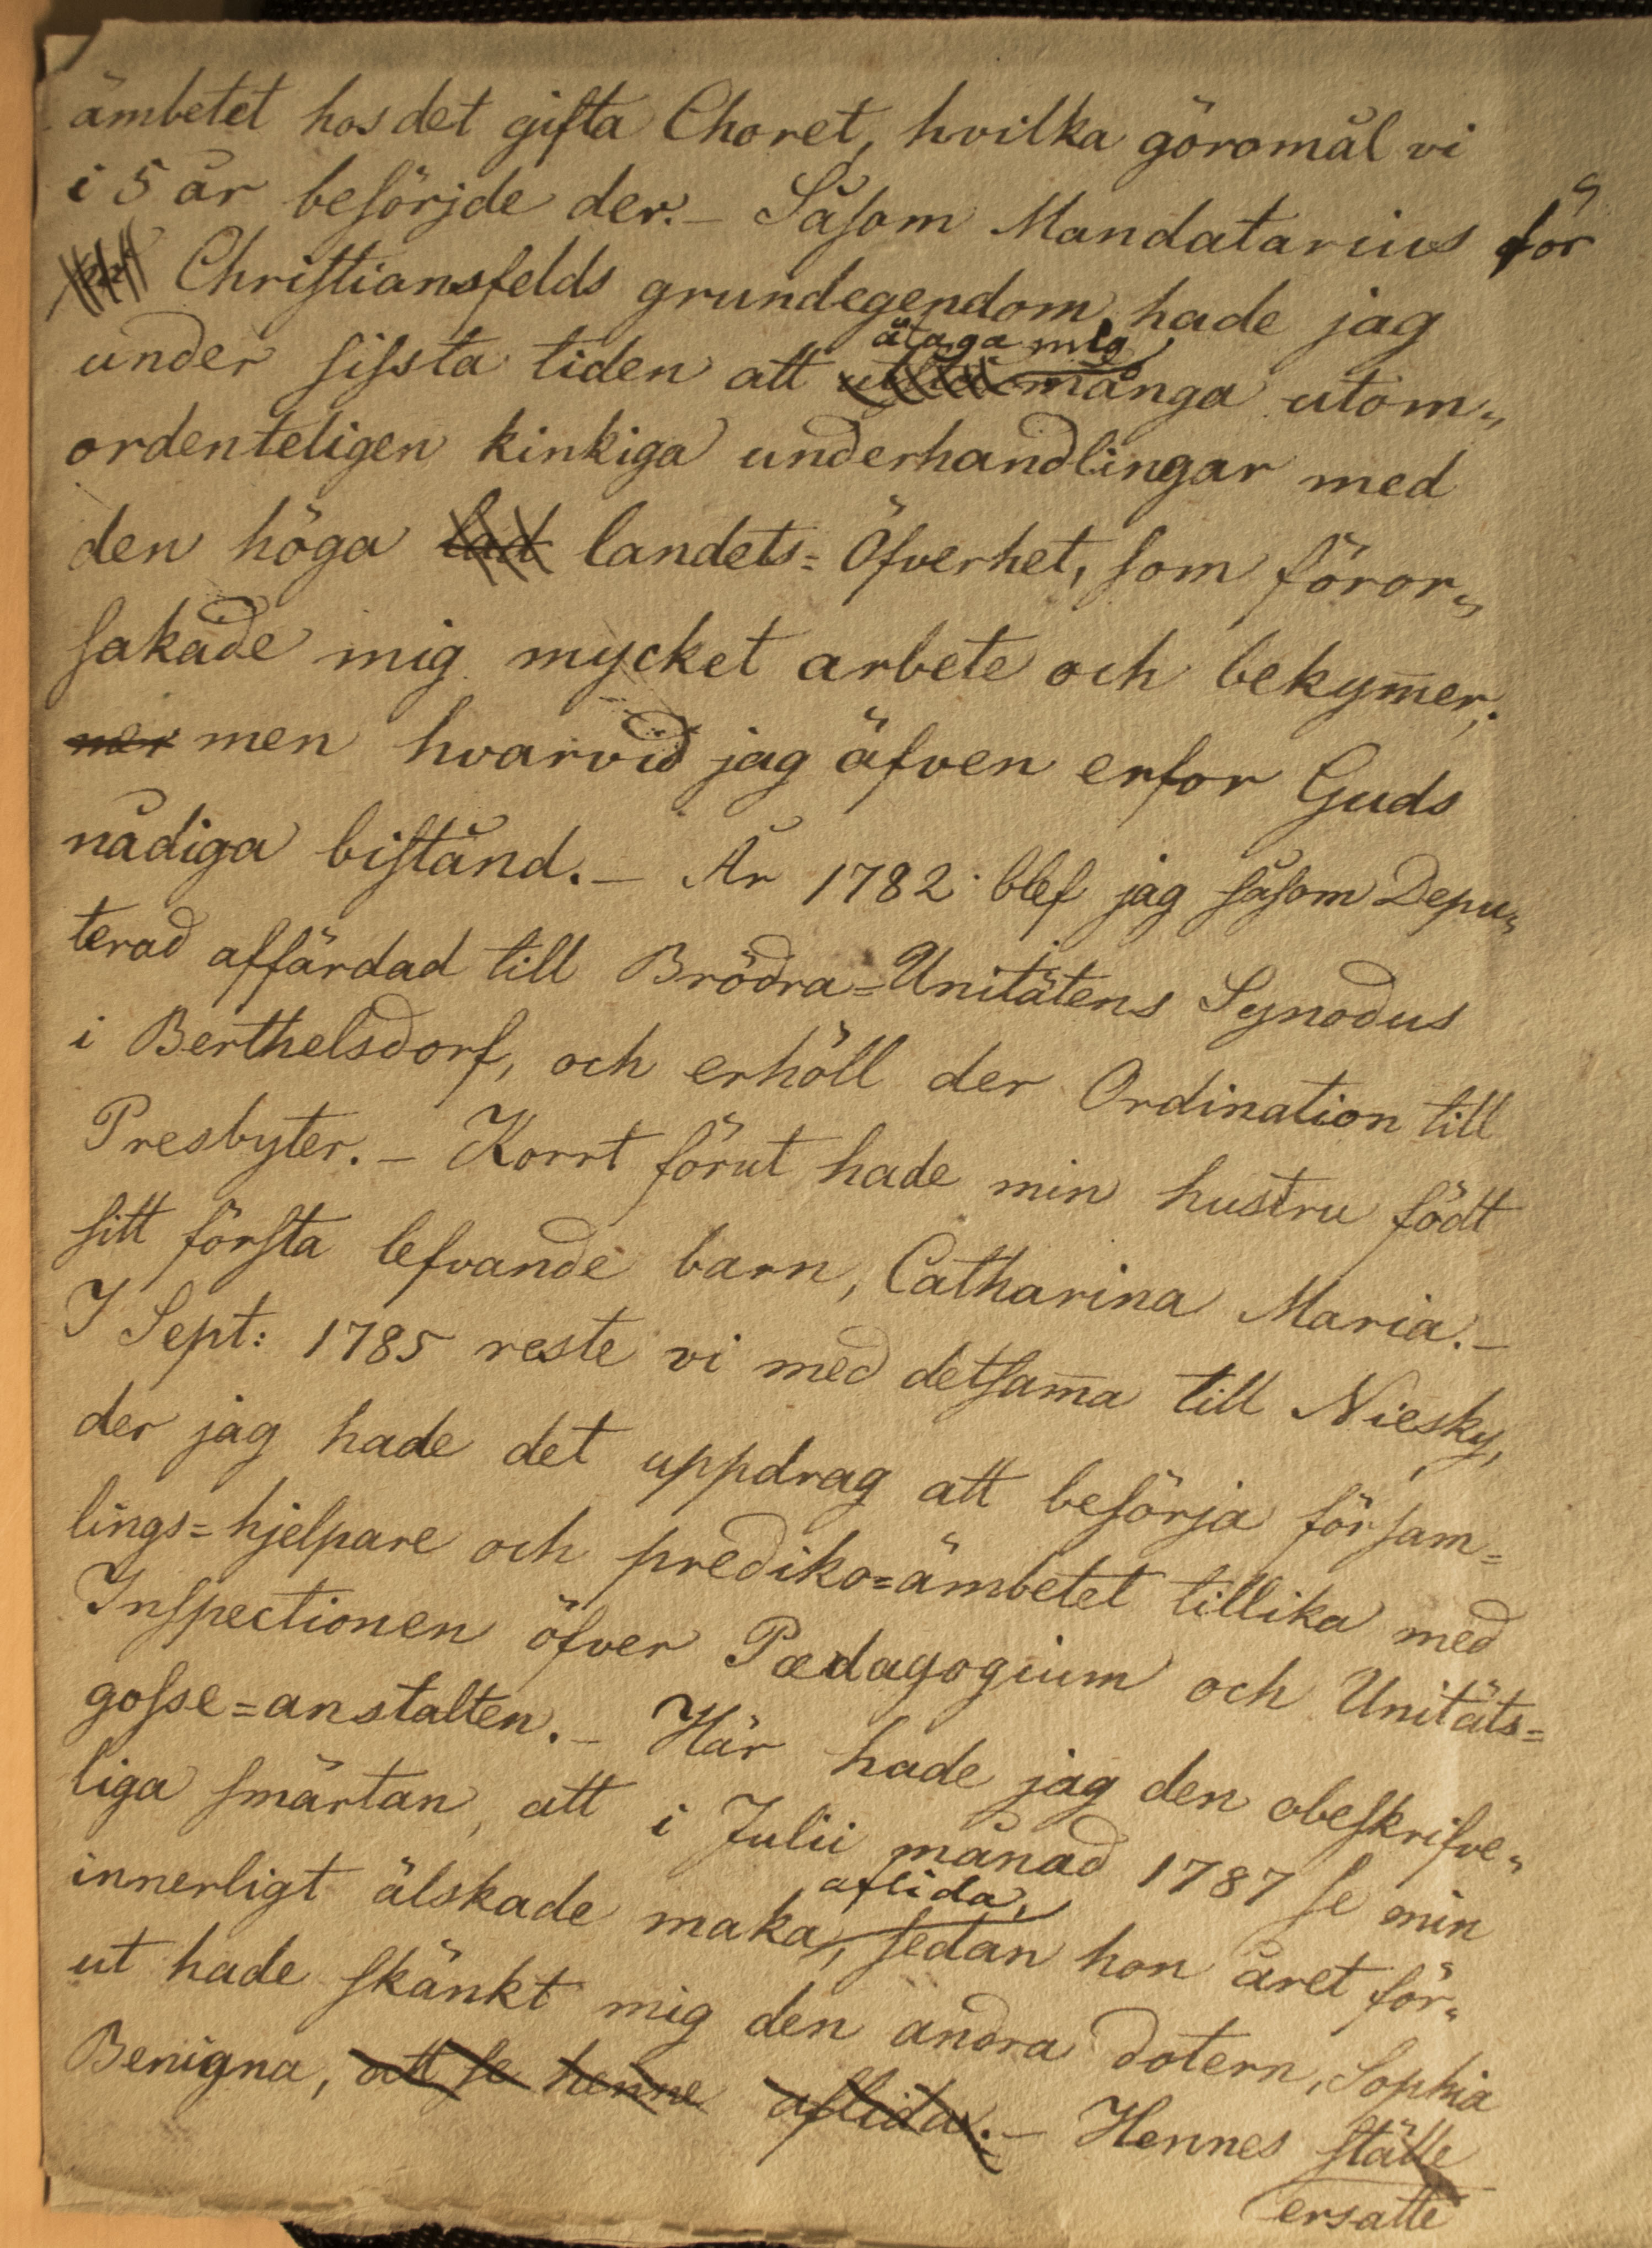 ämbetet hos det gifta Choret, hvilka göromål vi
i 5 år besörjde der. – Såsom Mandatarius för
Christiansfelds grundegendom, hade jag
åtaga mig
under sissta tiden att många utom„
ordenteligen kinkiga underhandlingar med
den höga lad landets= Öfverhet, som föror„
sakade mig mycket arbete och bekym̅er,
ner men hvarvid jag äfven erfor Guds
nådiga bistånd. – År 1782 blef jag såsom Depu„
terad affärdad till Brödra=Unitätens Synodus
i Berthelsdorf, och erhöll der Ordination till
Presbyter. – Korrt förut hade min hustru födt
sitt första lefvande barn, Catharina Maria. –
I Sept: 1785 reste vi med detsam̅a till Niesky,
der jag hade det uppdrag att besörja försam=
lings=hjelpare och prediko=ämbetet tillika med
Inspectionen öfver Pædagogium och Unitäts=
gosse=anstalten. – Här hade jag den obeskrifve„
liga smärtan, att i Julii månad 1787 se min
aflida,
innerligt älskade maka, sedan hon året för„
ut hade skänkt mig den andra dotern, Sophia
Benigna, att se henne aflida. – Hennes ställe
ersatte